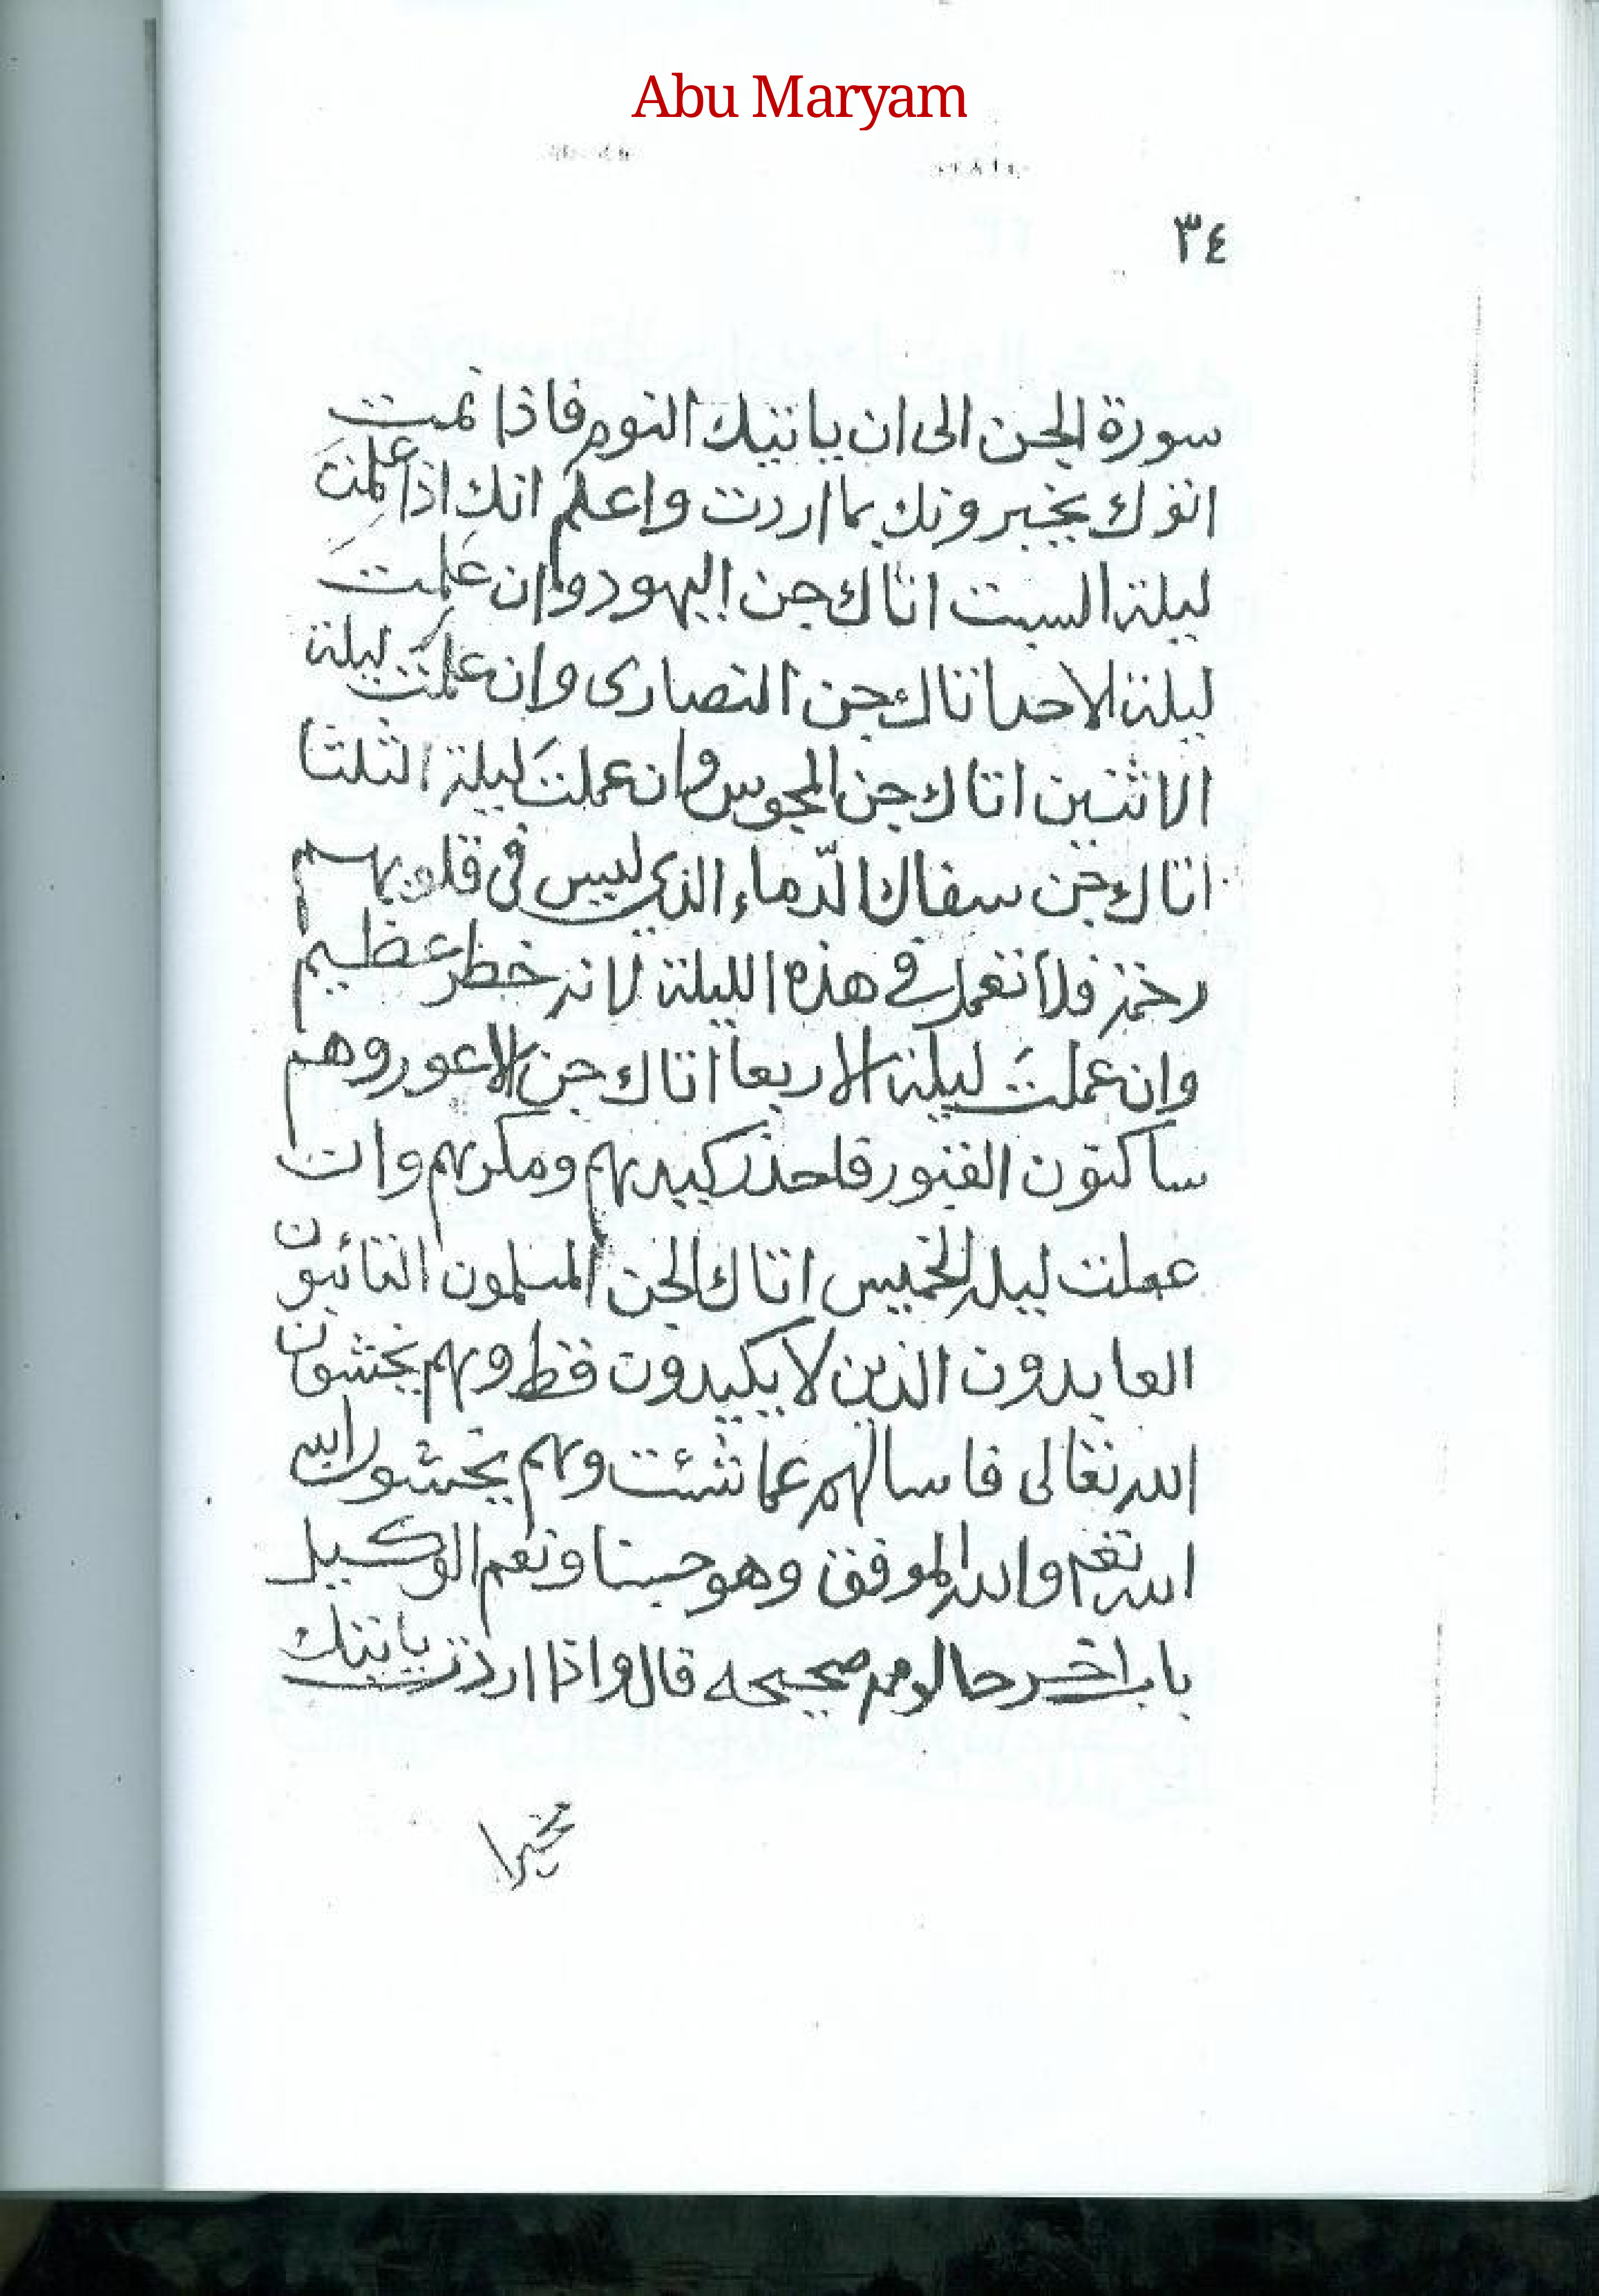 Abu Maryam
٣٤
سورة الجن الى ان ياتيك النوم فاذا نمت
اتوك يخبرونك بما اردت واعلم انك اذا علمت
ليلة السبت اتاك جن اليهود وان علمت
ليلة الاحد اتاك جن النصارى وان علمت ليلة
الاثنين اتاك جن المجوس وان عملت ليلة الثلثا
اتاك جن سفاك الدّماء الذي ليس فى قلوبهم
رحمة فلا تعمل في هذه الليلة لانه خطر عظيم
وان عملت ليلة الاربعا اتاك جن الاعور وهم
ساكتون القبور فاحذر كيدهم ومكرهم وان
عملت ليلة الخميس اتاك الجن المسلمون التائبون
العابدون الذين لا يكيدون قط وهم يخشون
الله تعالى فاسالهم عما شئت وهم يخشون الله
الله تعم والله الموفق وهو حسبنا ونعم الوكيل
باب اخر صحيحه قال واذا اردت ياتيك